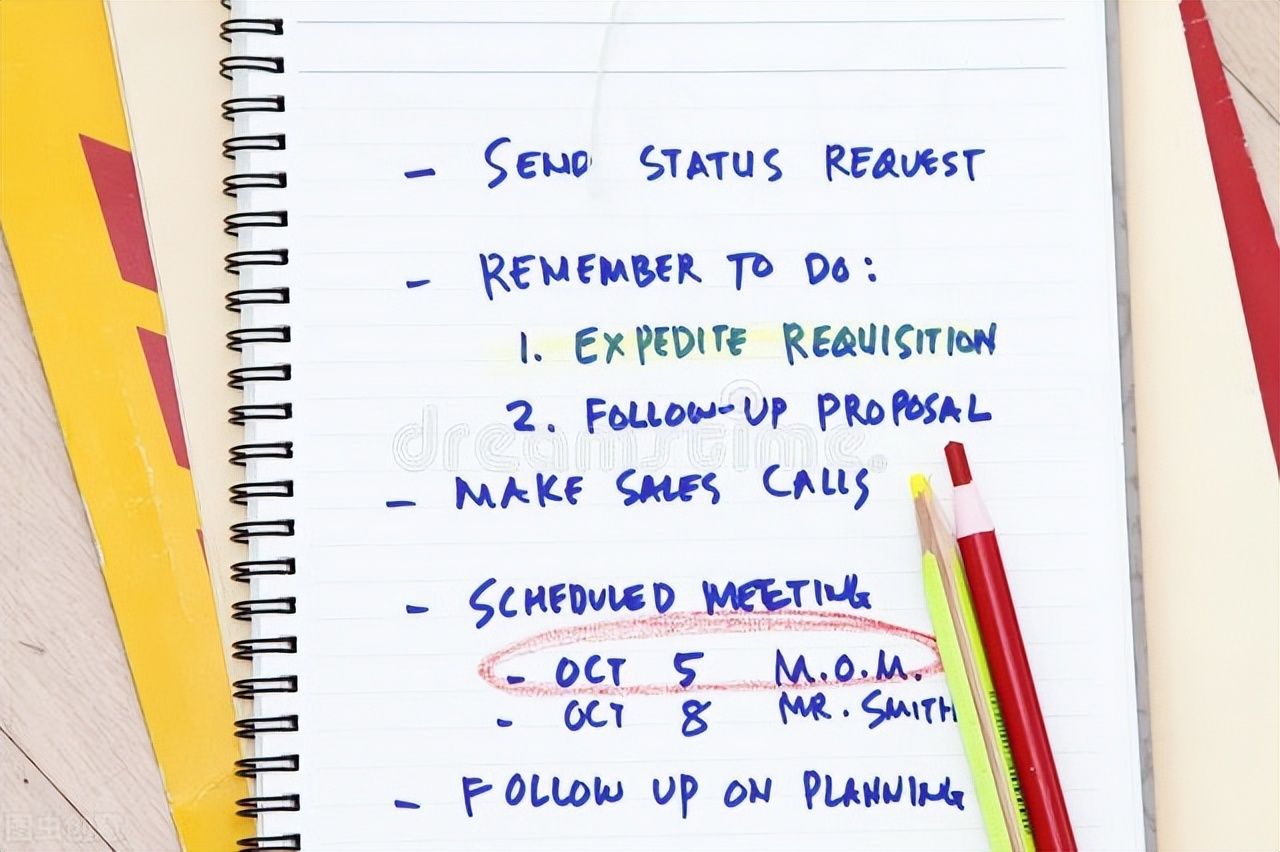 - SEND STATUS REQUEST
- REMEMBER TO DO:
1. EXPEDITE REQUISITION
2. FOLLOW-UP PROPOSAL
dreamstime.
- MAKE SALES CALLS
- SCHEDULED MEETING
- OCT 5 M.O.M.
- OCT 8 MR. SMITH
- FOLLOW UP ON PLANNING